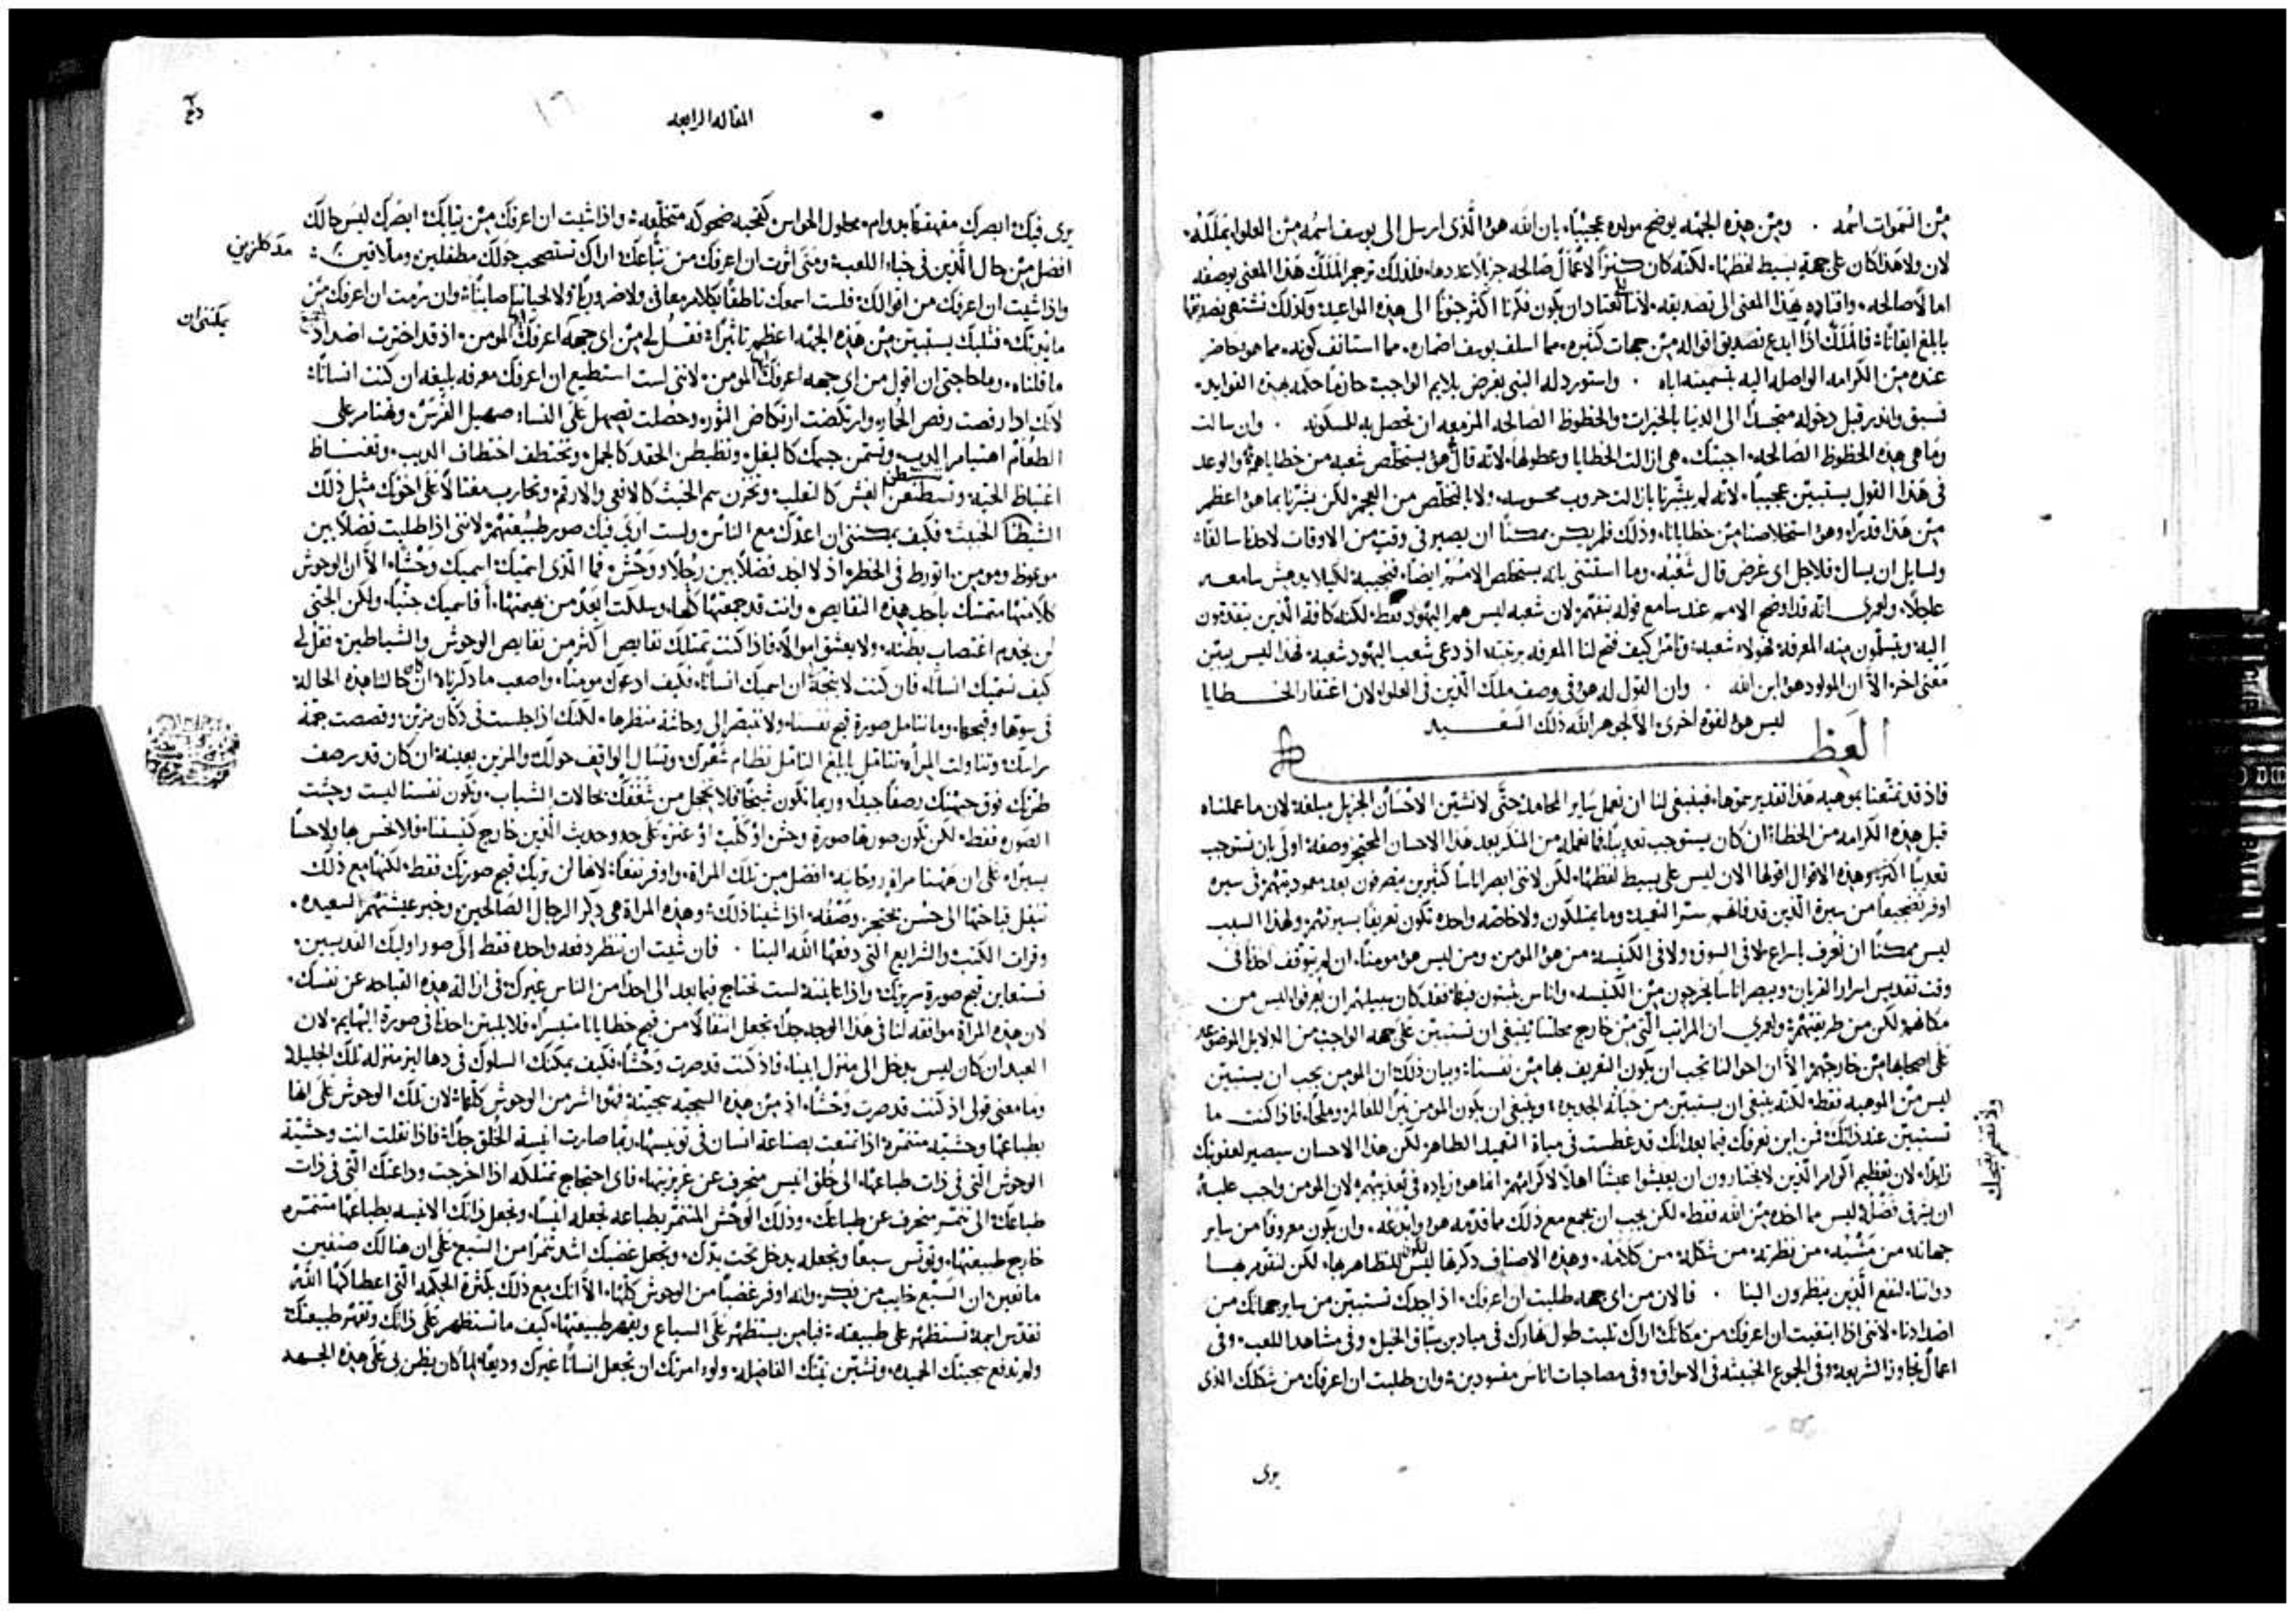 من السموات اسمه . ومن هذه الجهه يوضح مولده عجيبًا، بان الله هو الذى ارسل الى يوسف اسمه من العلو بملكه.
لان ولا هذا كان على جهة بسيط لفظها، لكنه كان كنزًا لاعمال صالحه جزيلا عددها، فلذلك ترجم الملك هذا المعنى بوصفه
امالا صالحه، واقتاده بهذا المعنى الى تصديقه، لاننا نعتاد ان يكون فكرنا اكثر جنوحًا الى هذه المواعيد، ولذلك نشتهى تصديقها
بابلغ ايقانًا، فالملك اذا ابدع تصديق اقواله من جهات كثيره، مما اسلف يوسف اضماره، مما استانف كونه، مما هو حاضر
عنده من الكرامه الواصله اليه بتسميته اياه . واستورد له النبى بغرض يلايم الواجب خاتمًا حكمه بهذه الفوايد.
فسبق وانذر قبل دخوله متجسدًا الى الدنيا بالخيرات، والحظوظ الصالحه المزمعه ان تحصل به للمسكونه . وان سالت
وما هى هذه الحظوظ الصالحه، اجبتك، هى ازالت الخطايا وعطولها، لانه قال هو يستخلص شعبه من خطاياهم، والوعد
فى هذا القول يستبين عجيبًا، لانه لم يبشرنا بازالت حروب محسوسه، ولا بالتخلص من العجم، لكن بشرنا بما هو اعظم
من هذا قدرًا، وهو استخلاصنا من خطايانا، وذلك فلم يكن ممكنًا ان يصير فى وقت من الاوقات لاحدنا سالفًا،
ولسايل ان يسال، فلاجل اى غرض قال شعبه، وما استثنى بانه يستخلص الامم ايضًا، فنجيبه لكيلا يدهش سامعه
عاجلا، ولعمرى انه قد اوضح الامم عند سامع قوله بتفهم، لان شعبه ليس هم اليهود فقط، لكنه كافة الذين يتقدمون
اليه، ويتسلمون منه المعرفه، فهولاء شعبه، وتامل كيف فتح لنا المعرفه برتبته، اذ دعى شعب اليهود شعبه، فهذا ليس يبين
معنى اخر، الا ان المولود هو ابن الله . وان القول له هو فى وصف ملك الذين فى العلو، لان اغتفار الخطايا
ليس هو لقوه اخرى، الا لجوهر الله ذلك السعيد
العظه
فاذ قد تمتعنا بموهبه هذا تقدير سموها، فينبغى لنا ان نعمل ساير المحامد، حتى لا نشين الاحسان الجزيل مبلغه، لان ما عملناه
قبل هذه الكرامه من الخطا، ان كان يستوجب تعذيبًا، فما نعمله من المنكر بعد هذا الاحسان المعجز وصفه، اولى بان يستوجب
تعذيبًا اكثر، وهذه الاقوال اقولها الان ليس على بسيط لفظها، لكن لاننى ابصر اناسًا كثيرين يتصرفون بعد معموديتهم فى سيره
اوفر تضجيعًا من سيرة الذين قد فاتهم سر النعيمه، وما يمتلكون ولا خاصه واحده تكون تعريفًا بسيرتهم، ولهذا السبب
ليس ممكنًا ان يعرف باسراع لا فى السوق ولا فى الكنيسه من هو المومن، ومن ليس هو مومنًا، ان لم يتوقف احدنا فى
وقت تقديس اسرار القربان، ويبصر اناسًا يخرجون من الكنيسه، واناس يثبتون فيها، فقد كان سبيلهم ان يعرفوا ليس من
مكانهم لكن من طريقتهم، ولعمرى ان المراتب التى من خارج محلنا ينبغى ان تستبين على جهه الواجب من الدلايل الموضوعه
على اصحابها من خارجهم، الا ان احوالنا يجب ان يكون التعريف بها من نفسنا، وبيان ذلك، ان المومن يجب ان يستبين
ليس من الموهبه فقط، لكنه ينبغى ان يستبين من حياته الجديده، وينبغى ان يكون المومن نيرًا للعالم، وملحًا، فاذا كنت ما
تستبين عند ذاتك، فمن اين نعرفك فيما بعد، انك قد غطست فى مياة التعميد الطاهر، لكن هذا الاحسان سيصير لعقوبتك
زايدًا، لان تعظيم اكرام الذين لا يختارون ان يعيشوا عيشًا اهلا لاكرامهم، انما هو زياده فى تعذيبهم، لان المومن واجب عليه،
ان يشرق فضله ليس ما اخذه من الله فقط، لكن يجب ان يجمع مع ذلك مما قدمه هو وابدعه، وان يكون معروفًا من ساير
جهاته، من مشيه، من نظرته، من شكله، من كلامه، وهذه الاصناف ذكرها ليس لتظاهر بها، لكن لنقوم بها
ذواتنا، لنفع الذين ينظرون الينا . فالان من اى جهه طلبت ان اعرفك، اذ اجدك تستبين من ساير جهاتك من
اضدادنا، لاننى اذا ابتغيت ان اعرفك من مكانك، اراك تلبث طول نهارك فى ميادين سباق الخيل، وفى مشاهد اللعب، وفى
اعمال تجاوز الشريعه، وفى الجموع الخبيثه فى الاسواق، وفى مصاحبات اناس مفسودين، وان طلبت ان اعرفك من شكلك الذى
يرى
المقاله الرابعه
يرى فيك، ابصرك مقهقهًا بدوام، محلول الحواس كقحبه ضحوكه متخلعه، واذا شيت ان اعرفك من ثيابك، ابصرك ليس حالك
افضل من حال الذين فى خباء اللعب، ومتى اثرت ان اعرفك من تباعك، اراك تستصحب حولك مطفلين، وملاقين،
واذا شيت ان اعرفك من اقوالك، فلست اسمعك ناطقًا بكلام معافى ولا ضروريًا، ولا لحياتنا صاينًا، وان رمت ان اعرفك من
مايدتك، فثلبك يستبين من هذه الجهه اعظم تاثيرًا، فقل لى من اى جهه اعرفك المومن، اذ قد اخترت اضداد
ما قلناه، وما حاجتى ان اقول من اى جهه اعرفك المومن، لاننى لست استطيع ان اعرفك معرفه بليغه ان كنت انسانًا،
لانك اذا رفصت رفص الحمار، وارتكضت ارتكاض الثور، وحصلت تصهل على النساء صهيل الفرس، ونهتام على
الطعام اهتيام الدب، وتسمن جسمك كالبغل، وتظبطن الحقد كالجمل، وتختطف اختطاف الذيب، وتغتاظ
اغتياظ الحيه، وتستطعن الغش كالثعلب، وتخزن سم الخبث كالافعى والارقم، وتحارب مغتالا على اخوتك مثل ذلك
الشيطان الخبيث، فكيف يمكننى ان اعدك مع الناس، ولست ارى فيك صور طبيعتهم، لاننى اذا طلبت فضلا بين
موعوظ ومومن، اتورط فى الخطر، اذ لا اجد فضلا بين رجلا، ووحش، فما الذى اسميك، اسميك وحشًا، الا ان الوحوش
كلا منها متمسك باحد هذه النقايص، وانت قد جمعتها كلها، وسلكت ابعد من بهيمتها، افاسميك جنيًا، ولكن الجنى
لن يخدم اغتصاب بطنه، ولا يعشق اموالا، فاذا كنت تمتلك نقايص اكثر من نقايص الوحوش والشياطين، فقل لى
كيف نسميك انسانًا، فان كنت لا يتجه ان اسميك انسانًا، فكيف ادعوك مومنًا، واصعب ما ذكرناه، ان حالنا هذه الحاله
فى سوها وقبحها، وما نتامل صورة قبح نفسنا، ولا نتبصر الى وحاشة منظرها، لكنك اذا جلست فى دكان مزين، وقصصت جمة
راسك، وتناولت المراه، تتامل بابلغ التامل نظام شعرك، وتسال الواقف حولك والمزين بعينه، ان كان قد رصف
طرتك فوق جبهتك رصفًا جيدًا، وربما تكون شيخًا، فلا تخجل من شغفك بحالات الشباب، وتكون نفسنا ليست وحشت
الصوره فقط، لكن تكون صورها صورة وحش، او كلب، او عنزه، على حد وحديث الذين خارج كنيستنا، فلا نحس بها ولا حسًا
يسيرًا، على ان هاهنا مراه روحانيه، افضل من تلك المراة، واوفر نفعًا، لانها لن تريك قبح صورتك فقط، لكنها مع ذلك
تنقل قباحتها الى حسن يعجز وصفه، اذا شينا ذلك، وهذه المراة هى ذكر الرجال الصالحين، وخبر عيشتهم السعيده،
وقرات الكتب، والشرايع التى دفعها الله الينا . فان شيت ان تنظر دفعه واحده فقط الى صور اوليك القديسين،
فستعاين قبح صورة سريرتك، واذا عاينته لست تحتاج فيما بعد الى احدًا من الناس غيرك، فى ازالة هذه القباحه عن نفسك،
لان هذه المراة موافقه لنا فى هذا الوجه جدًا، تجعل انتقالا من قبح خطايانا متيسرًا، فلا يلبثن احدنا فى صورة البهايم، لان
العبد ان كان ليس يدخل الى منزل ابينا، فاذ كنت قد صرت وحشًا، فكيف يمكنك السلوك فى دهاليز منزله تلك الجليله،
وما معنى قولى اذ كنت قد صرت وحشًا، اذ من هذه السجيه سجيته، فهو اشر من الوحوش كلها، لان تلك الوحوش على انها
بطباعها وحشيه متنمره، اذا تمتعت بصناعة انسان فى تونيسها، ربما صارت انيسة الخلق جدًا، فاذا نقلت انت وحشية
الوحوش التى فى ذات طباعها، الى خلق انيس منحرف عن غريزتها، فاى احتجاج تمتلكه اذا اخرجت وداعتك التى فى ذات
طباعك، الى تنمر منحرف عن طباعك، وذلك الوحش المتنمر بطباعه تجعله انيسًا، وتجعل ذاتك الانيسه بطباعها متنمره
خارج طبيعتها، وتونس سبعًا وتجعله يدخل تحت يدك، وتجعل غضبك اشد تنمرًا من السبع، على ان هنالك صنفين
مانعين، ان السبع خايب من فكر، وانه اوفر غضبًا من الوحوش كلها، الا انك مع ذلك بكثرة الحكمه التى اعطاكها الله
تقدر ايضًا تستظهر على طبيعته، فيا من يستظهر على السباع ويقهر طبيعتها، كيف ما تستظهر على ذاتك وتقهر طبيعتك،
ولم تدفع سجيتك الحميده، وتشين نيتك الفاضله، ولو امرتك ان تجعل انسانًا غيرك وديعًا، لما كان يظن بى على هذه الجهه